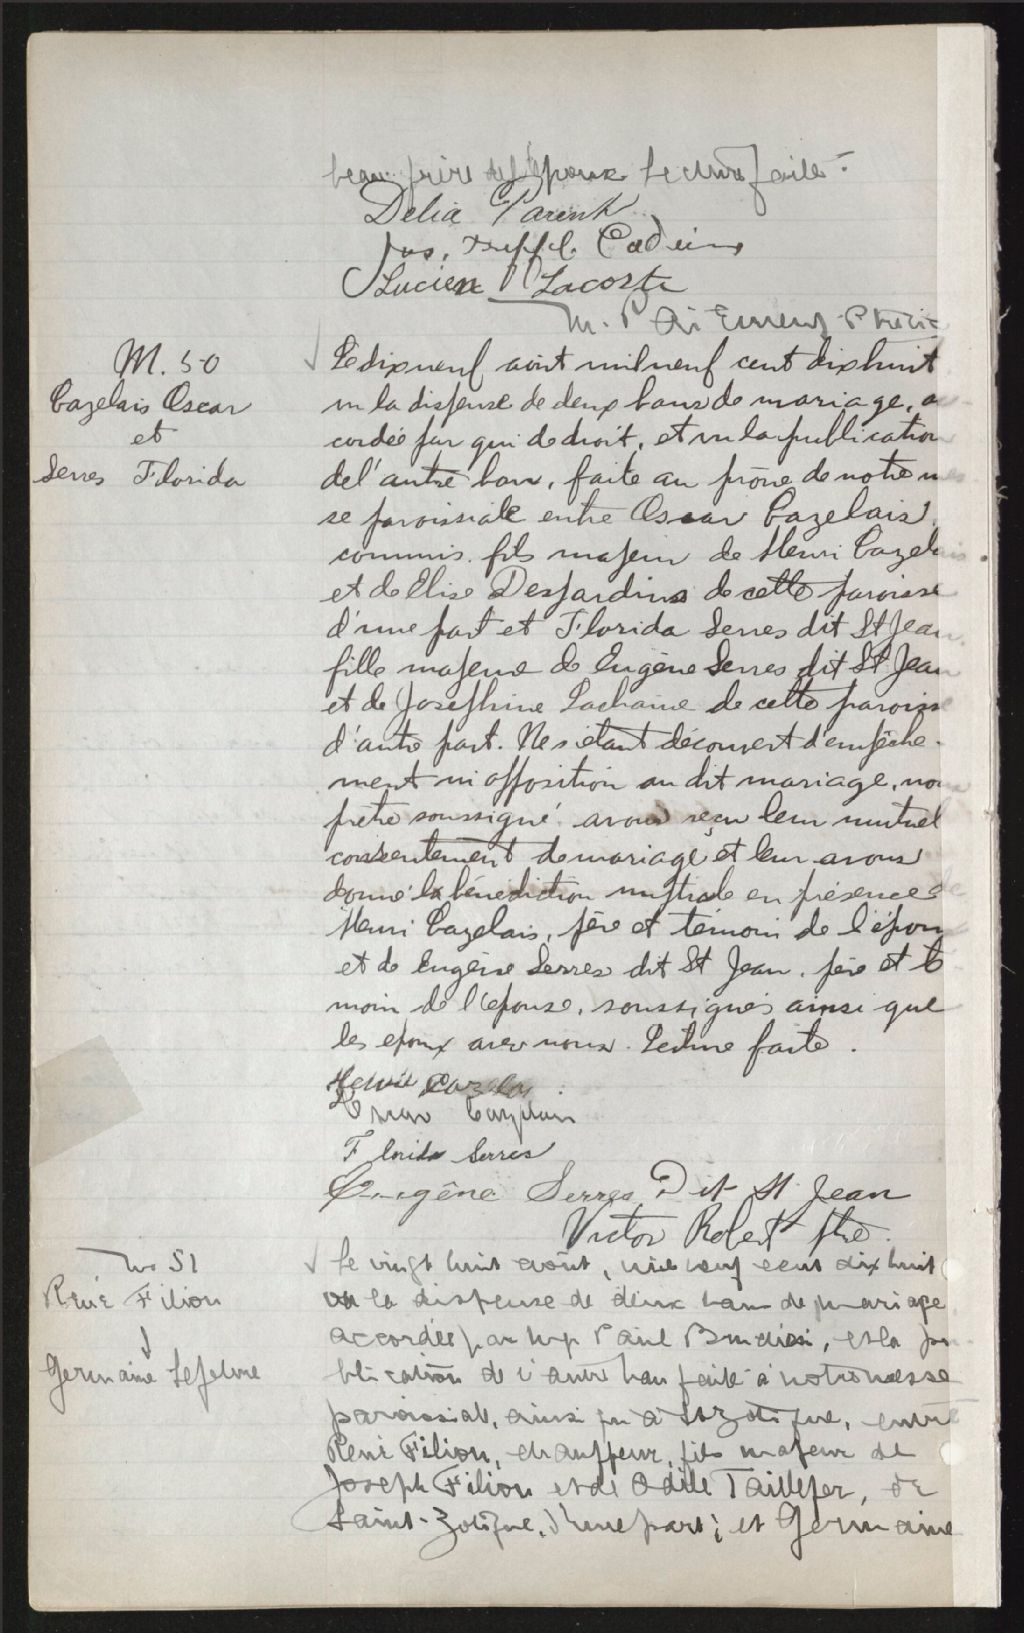 beau-frère de l'épouse Lecture faite.
Délia Parent
Jos. Treffl. Cadieux
Lucien Lacoste
M. P.
M. 50
Cazelais Oscar
et
Serres Florida
Le dix neuf août mil neuf cent dix huit
vu la dispense de deux bans de mariage, ac-
cordée par qui de droit, et vu la publication
de l'autre ban, faite au prône de notre mes
se paroissiale entre Oscar Cazelais
commis, fils majeur de Henri Cazelais
et de Elise Desjardins de cette paroisse
d'une part et Florida Serres dit St Jean
fille majeure de Eugène Serres dit St Jean
et de Josephine Lachaine de cette paroisse
d'autre part. Ne s'étant découvert d'empêche-
ment ni opposition au dit mariage, nous
prêtre soussigné avons reçu leur mutuel
consentement de mariage et leur avons
donné la bénédiction nuptiale en présence de
Henri Cazelais, père et témoin de l'époux
et de Eugène Serres dit St Jean, père et té
moin de l'épouse, soussignés ainsi que
les epoux avec nous. Lecture faite.
Henri Cazelais
Oscar Cazelais
Florida Serres
Eugène Serres Dit St Jean
Victor Robert ptre.
No 51
René Filion
Germaine Lefebvre
Le vingt huit août, mil neuf cent dix huit
vu la dispense de deux bans de mariage
accordée par Mgr Paul Bruchési, et la pu
blication de l'autre ban faite à notre messe
paroissiale, ainsi qu'à St Zotique, entre
René Filion, chauffeur, fils majeur de
Joseph Filion et de Odile Taillefer, de
Saint-Zotique, d'une part; et Germaine